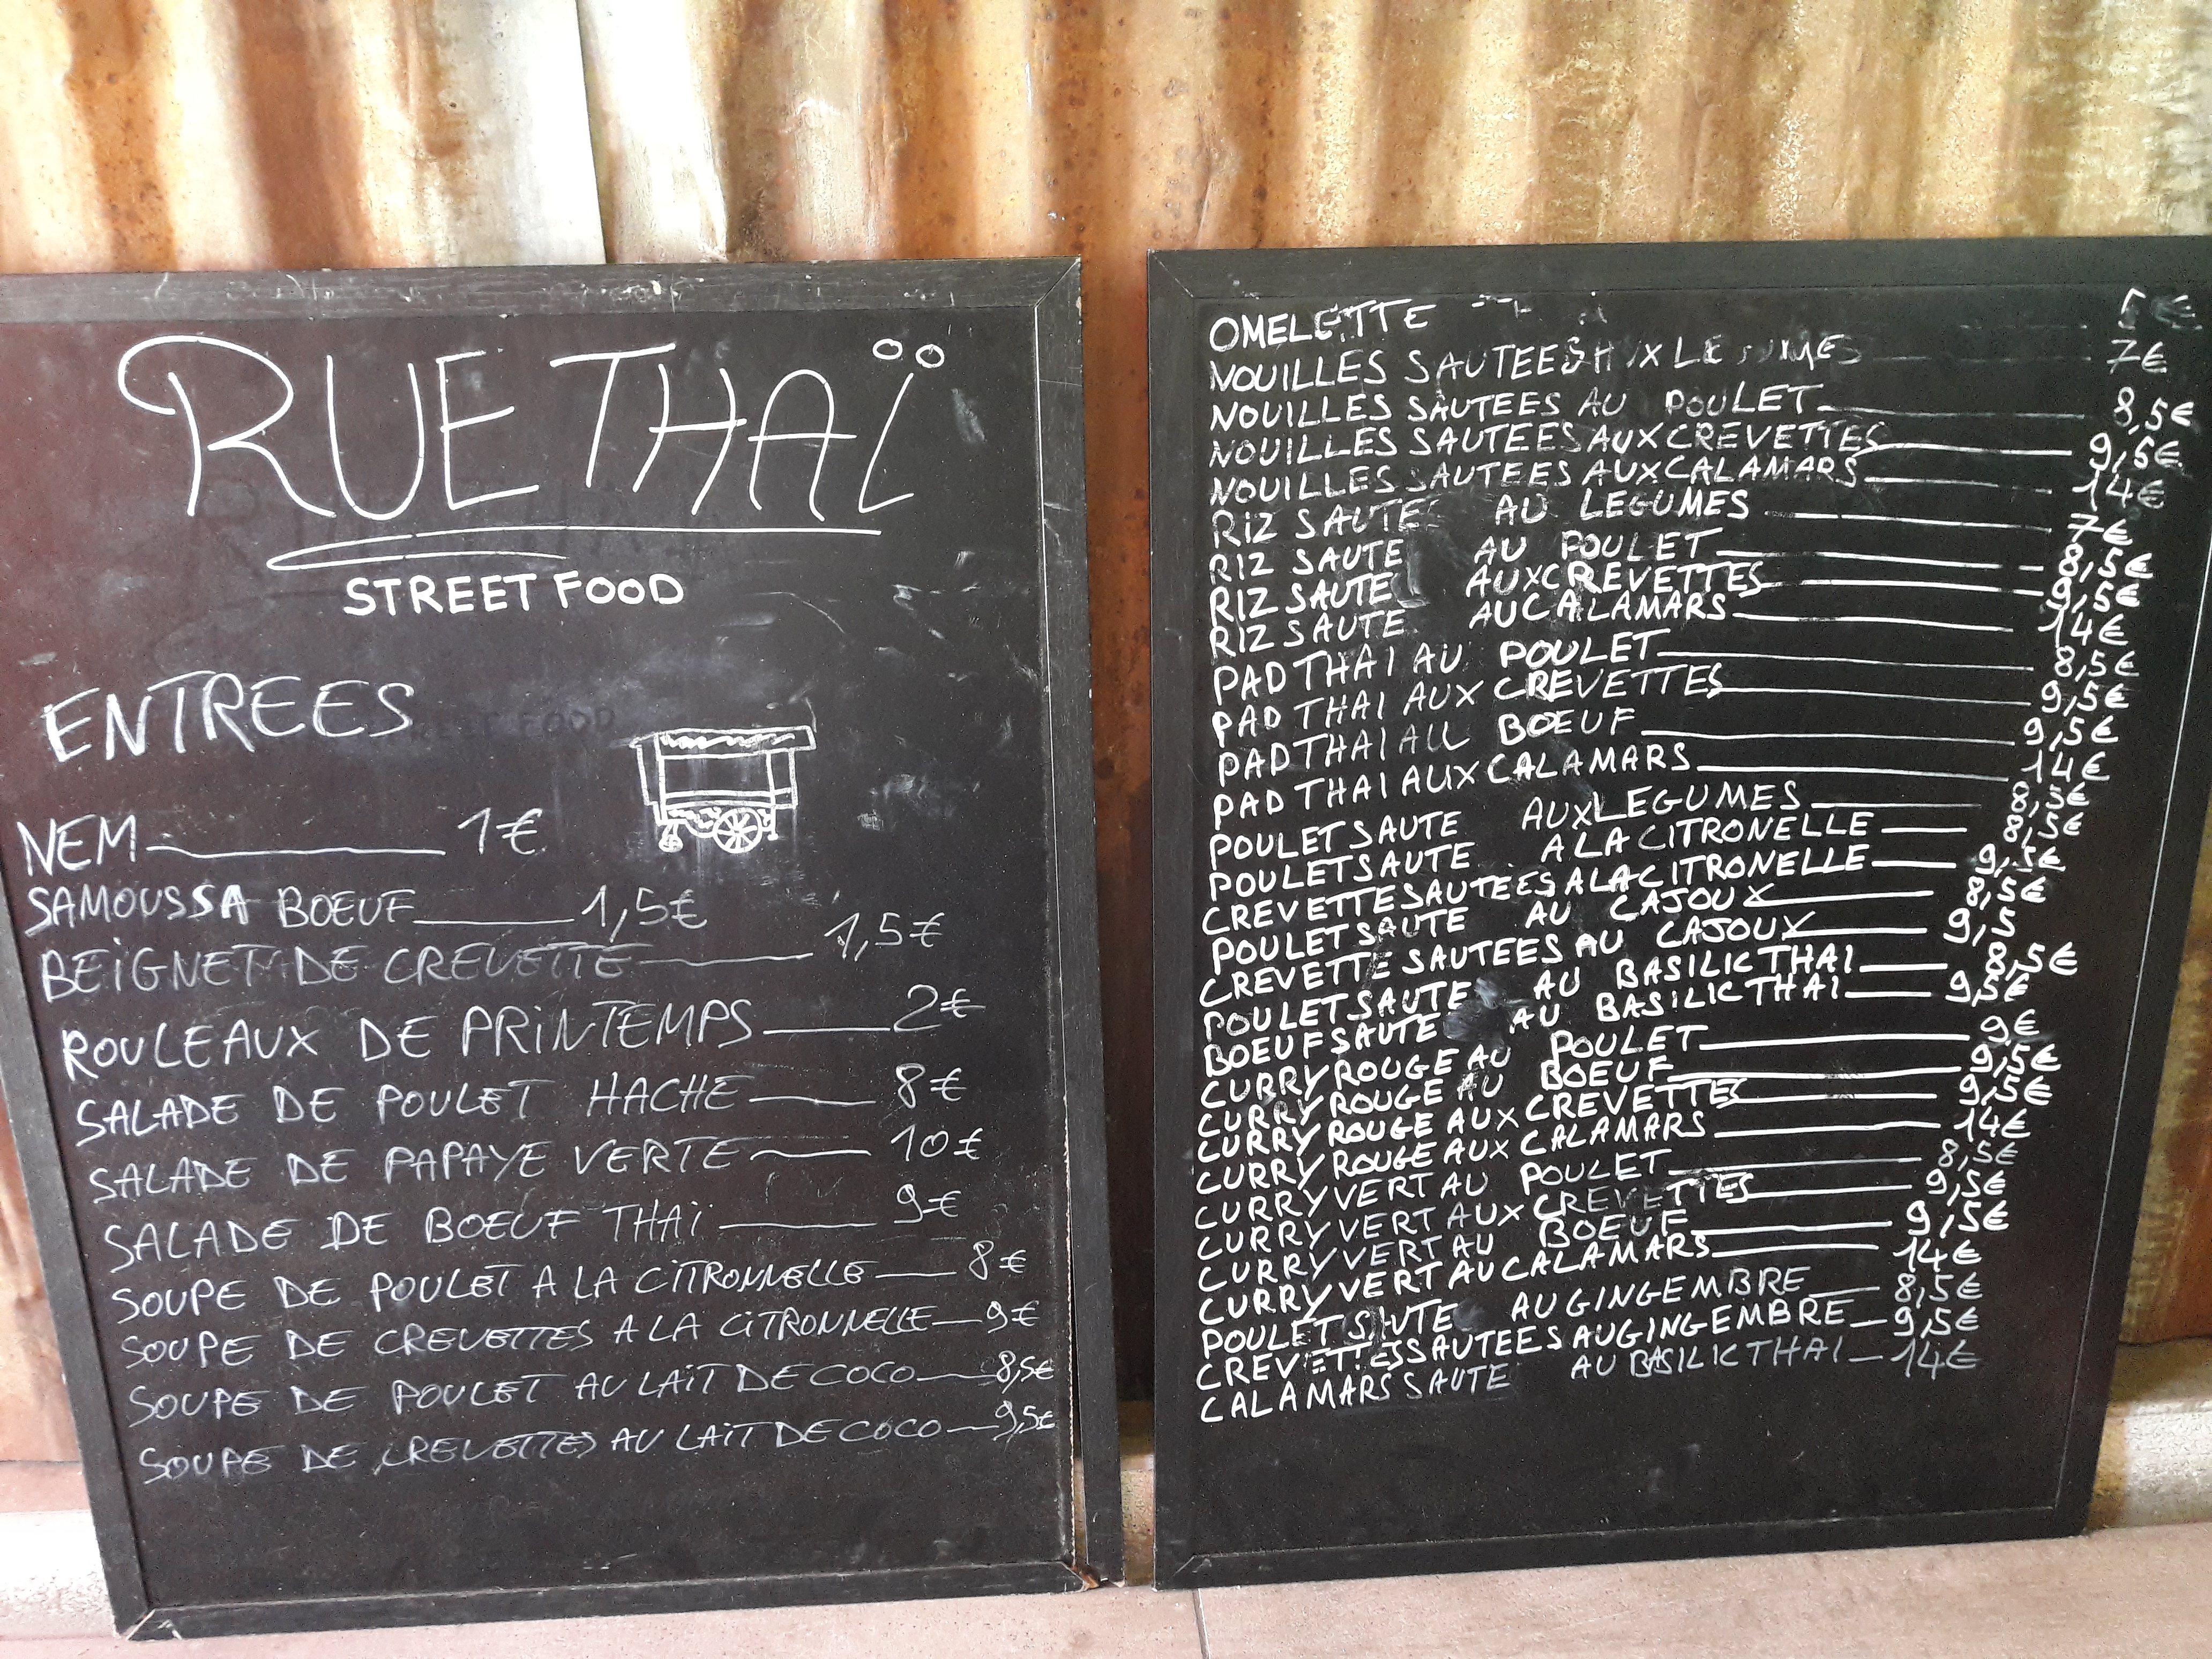 RUE THAÏ
STREET FOOD
ENTREES
NEM 1€
SAMOUSSA BOEUF 1,5€
BEIGNET DE CREVETTE 1,5€
ROULEAUX DE PRINTEMPS 2€
SALADE DE POULET HACHE 8€
SALADE DE PAPAYE VERTE 10€
SALADE DE BOEUF THAÏ 9€
SOUPE DE POULET A LA CITRONNELLE 8€
SOUPE DE CREVETTES A LA CITRONNELLE 9€
SOUPE DE POULET AU LAIT DE COCO 8,5€
SOUPE DE CREVETTES AU LAIT DE COCO 9,5€
OMELETTE 5€
NOUILLES SAUTEES AUX LEGUMES 7€
NOUILLES SAUTEES AU POULET 8,5€
NOUILLES SAUTEES AUX CREVETTES 9,5€
NOUILLES SAUTEES AUX CALAMARS 14€
RIZ SAUTE AU LEGUMES 7€
RIZ SAUTE AU POULET 8,5€
RIZ SAUTE AUX CREVETTES 9,5€
RIZ SAUTE AU CALAMARS 14€
PAD THAI AU POULET 8,5€
PAD THAI AUX CREVETTES 9,5€
PAD THAI AU BOEUF 9,5€
PAD THAI AUX CALAMARS 14€
POULET SAUTE AUX LEGUMES 8,5€
POULET SAUTE A LA CITRONELLE 8,5€
CREVETTE SAUTEES A LA CITRONELLE 9,5€
POULET SAUTE AU CAJOUX 8,5€
CREVETTE SAUTEES AU CAJOUX 9,5
POULET SAUTE AU BASILIC THAI 8,5€
BOEUF SAUTE AU BASILIC THAI 9,5€
CURRY ROUGE AU POULET 9€
CURRY ROUGE AU BOEUF 9,5€
CURRY ROUGE AUX CREVETTES 9,5€
CURRY ROUGE AUX CALAMARS 14€
CURRY VERT AU POULET 8,5€
CURRY VERT AUX CREVETTES 9,5€
CURRY VERT AU BOEUF 9,5€
CURRY VERT AU CALAMARS 14€
POULET SAUTE AU GINGEMBRE 8,5€
CREVETTES SAUTEES AU GINGEMBRE 9,5€
CALAMARS SAUTE AU BASILIC THAI 14€